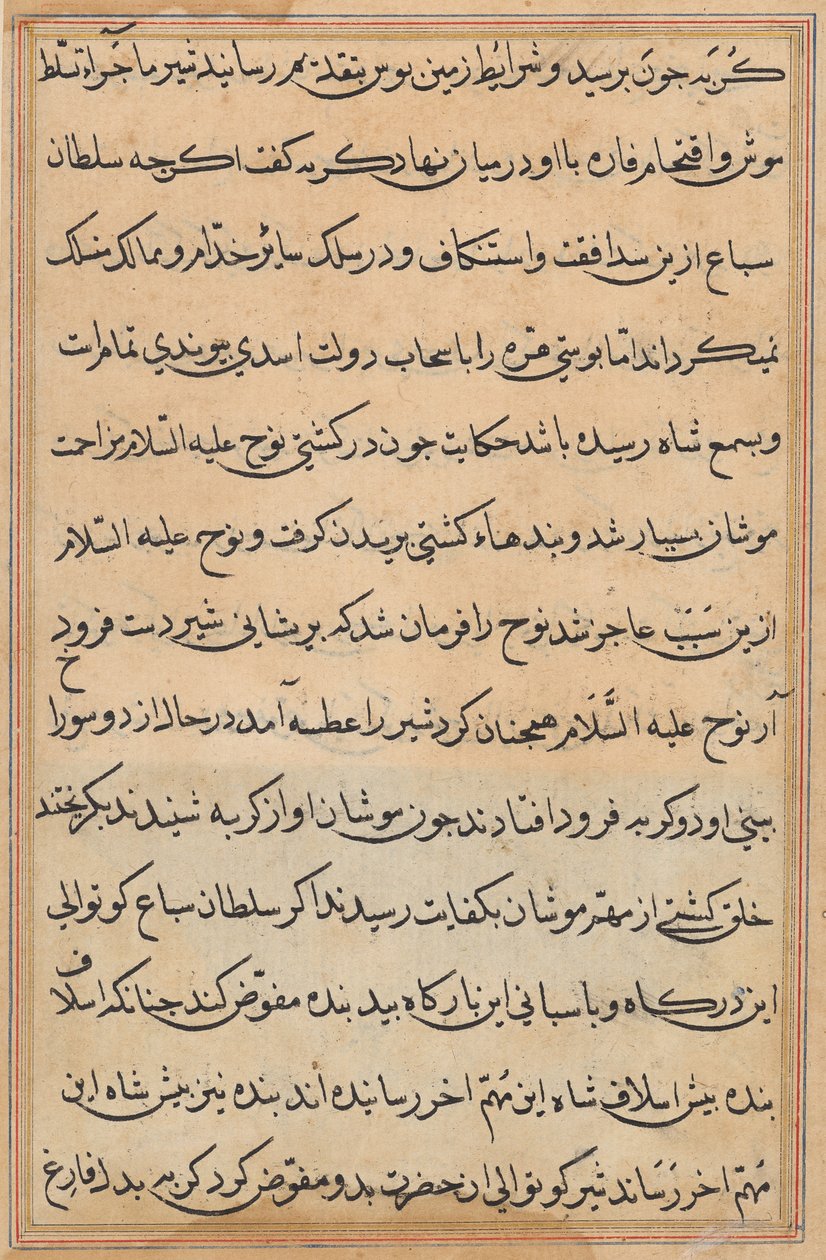 کُربَه جون برسید و شرایُط زمین بوس بتقدیم رسانید شیر ماجَراء تسلّط
موش واقتحام فاره با او در میان نهاد کربه کفت اکرجه سلطان
سباع ازین سدافقت واستنکاف ودر سلک سائر خدّام وممالک منسلک
نمیکرداند امّا بوستی هرّه را با سحاب دولت اسدی بیوندی تمام است
وبسمع شاه رسیده باشد حکایت جون در کشتی نوح علیه السّلام مزاحمت
موشان بسیار شد وبندهاء کشتی بریدن کرفت ونوح علیه السّلام
ازین سَبَب عاجز شد نوح را فرمان شد که برپیشانی شیر دست فروذ
آر نوح علیه السَّلَام همجنان کرد شیر را عطسه آمد در حال از دو سورا خ
بینی او دو کربه فرود افتادند جون موشان اواز کربه شنیدند بکریختند
خلق کشتی از مهمّ موشان بکفایت رسیدند اکر سلطان سباع کوتوالی
این درکاه وباسبانی این بارکاه ببد بنده مفوّض کند جنانکه اسلاف
بنده بیش اسلاف شاه این مُهمّ اخر رسانیده اند بنده نیز بیش شاه این
مُهمّ اخر رَسَاند شیر کوتوالی ان حضرت بدو مفوّض کرد کربه بدل فارغ